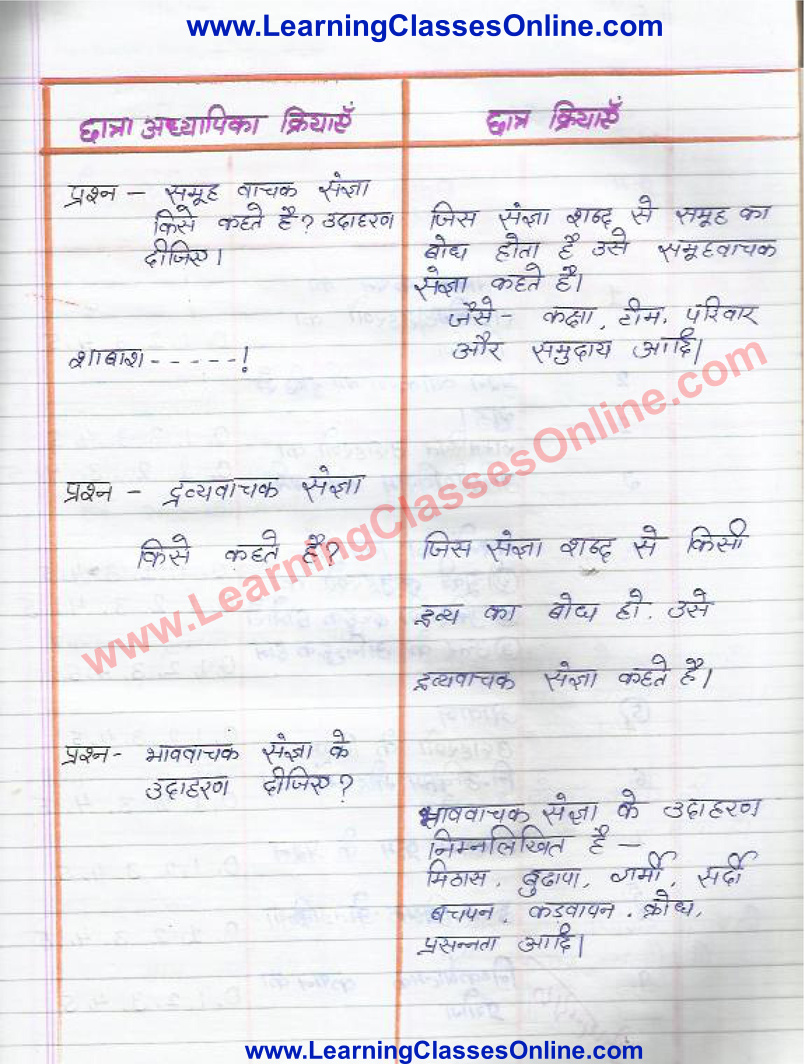 www.LearningClassesOnline.com
छात्रा अध्यापिका क्रियाएँ
छात्र क्रियाएँ
प्रश्न – समूह वाचक संज्ञा
किसे कहते है? उदाहरण
दीजिए।
जिस संज्ञा शब्द से समूह का
बोध होता है उसे समूहवाचक
संज्ञा कहते है।
जैसे – कक्षा, टीम, परिवार
और समुदाय आदि।
शाबाश - - - - - !
प्रश्न – द्रव्यवाचक संज्ञा
किसे कहते है?
जिस संज्ञा शब्द से किसी
द्रव्य का बोध हो. उसे
द्रव्यवाचक संज्ञा कहते है।
प्रश्न - भाववाचक संज्ञा के
उदाहरण दीजिए?
भाववाचक संज्ञा के उदाहरण
निम्नलिखित है –
मिठास, बुढापा, गर्मी, सर्दी
बचपन, कड़वापन, क्रोध,
प्रसन्नता आदि।
www.LearningClassesOnline.com
www.LearningClassesOnline.com